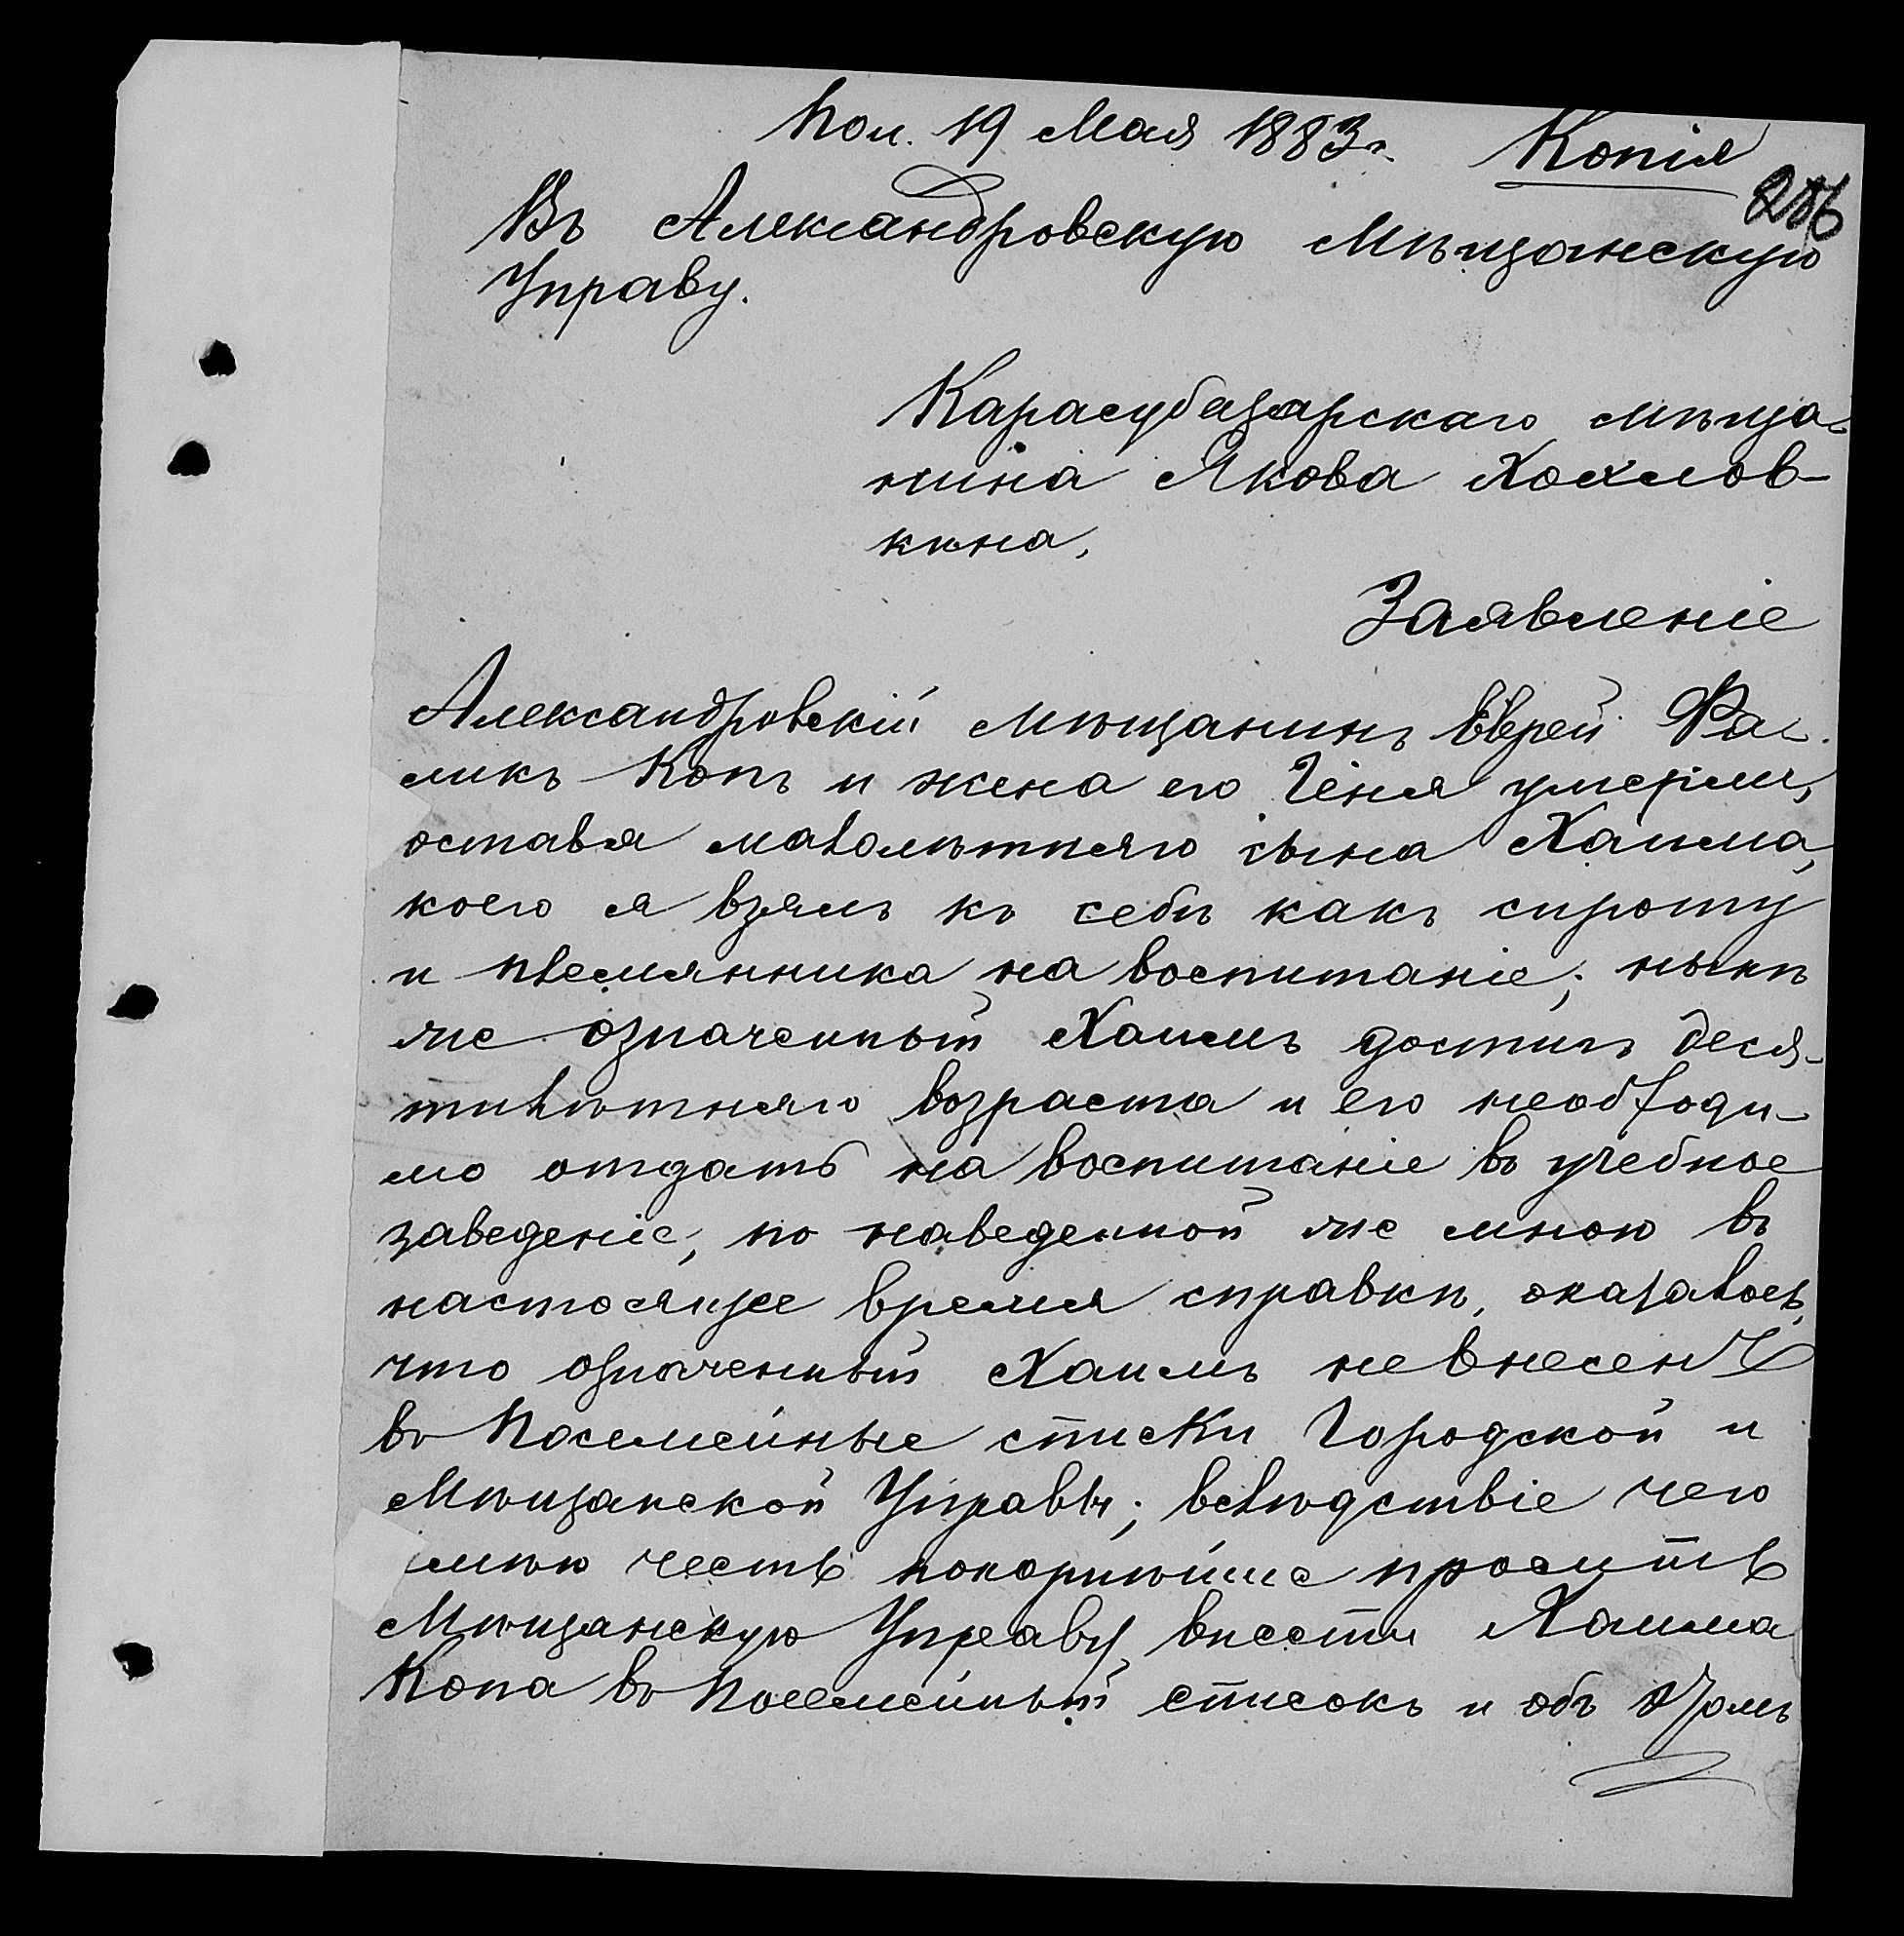 Пол. 19 Мая 1883 г. Копія
286
Въ Александровскую Мѣщанскую
Управу.
Карасубазарскаго мѣща-
нина Якова Хохлов-
кина,
Заявленіе
Александровскій мѣщанинъ Еврей Фа-
ликъ Копъ и жена его Геня умерли,
оставя малолѣтняго сына Хаима,
коего я взялъ къ себѣ какъ сироту
и племянника на воспитаніе; нынѣ
же означенный Хаимъ достигъ деся-
тилѣтняго возраста и его необходи-
мо отдать на воспитаніе въ учебное
заведеніе, по наведенной же мною въ
настоящее время справкѣ, оказалось,
что означенный Хаимъ не внесенъ
въ посемейные списки Городской и
Мѣщанской Управы; вслѣдствіе чего
имѣю честь покорнѣйше просить
Мѣщанскую Управу внести Хаима
Копа въ посемейный списокъ и объ этомъ